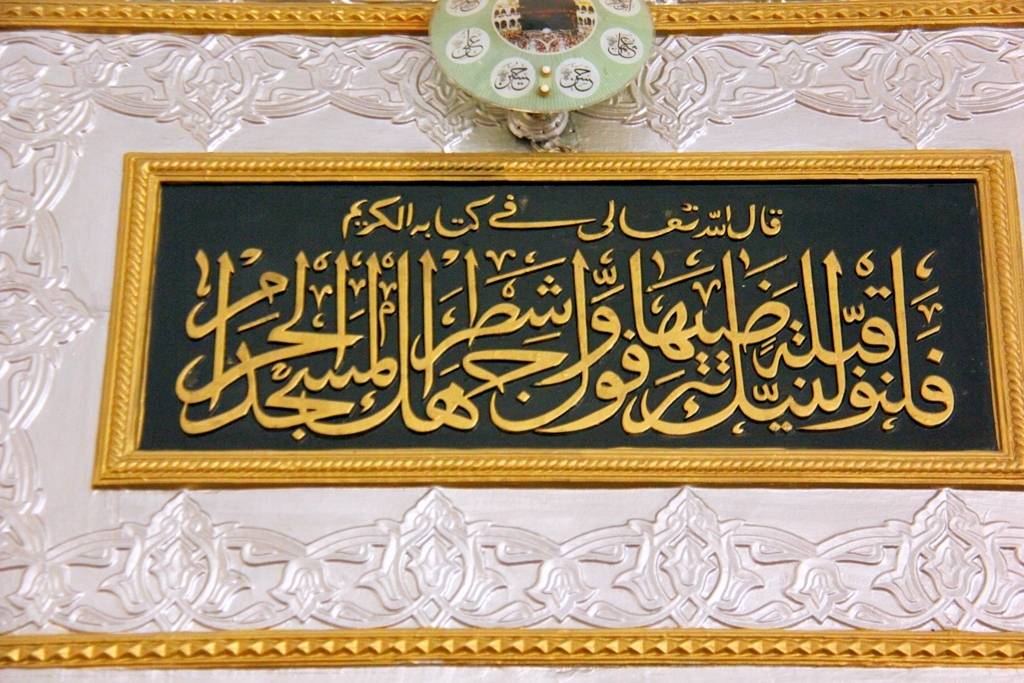 علي
عثمان
حسين
حسن
قال الله تعالى في كتابه الكريم
فلنولينك قبلة ترضيها فول وجهك شطر المسجد الحرام